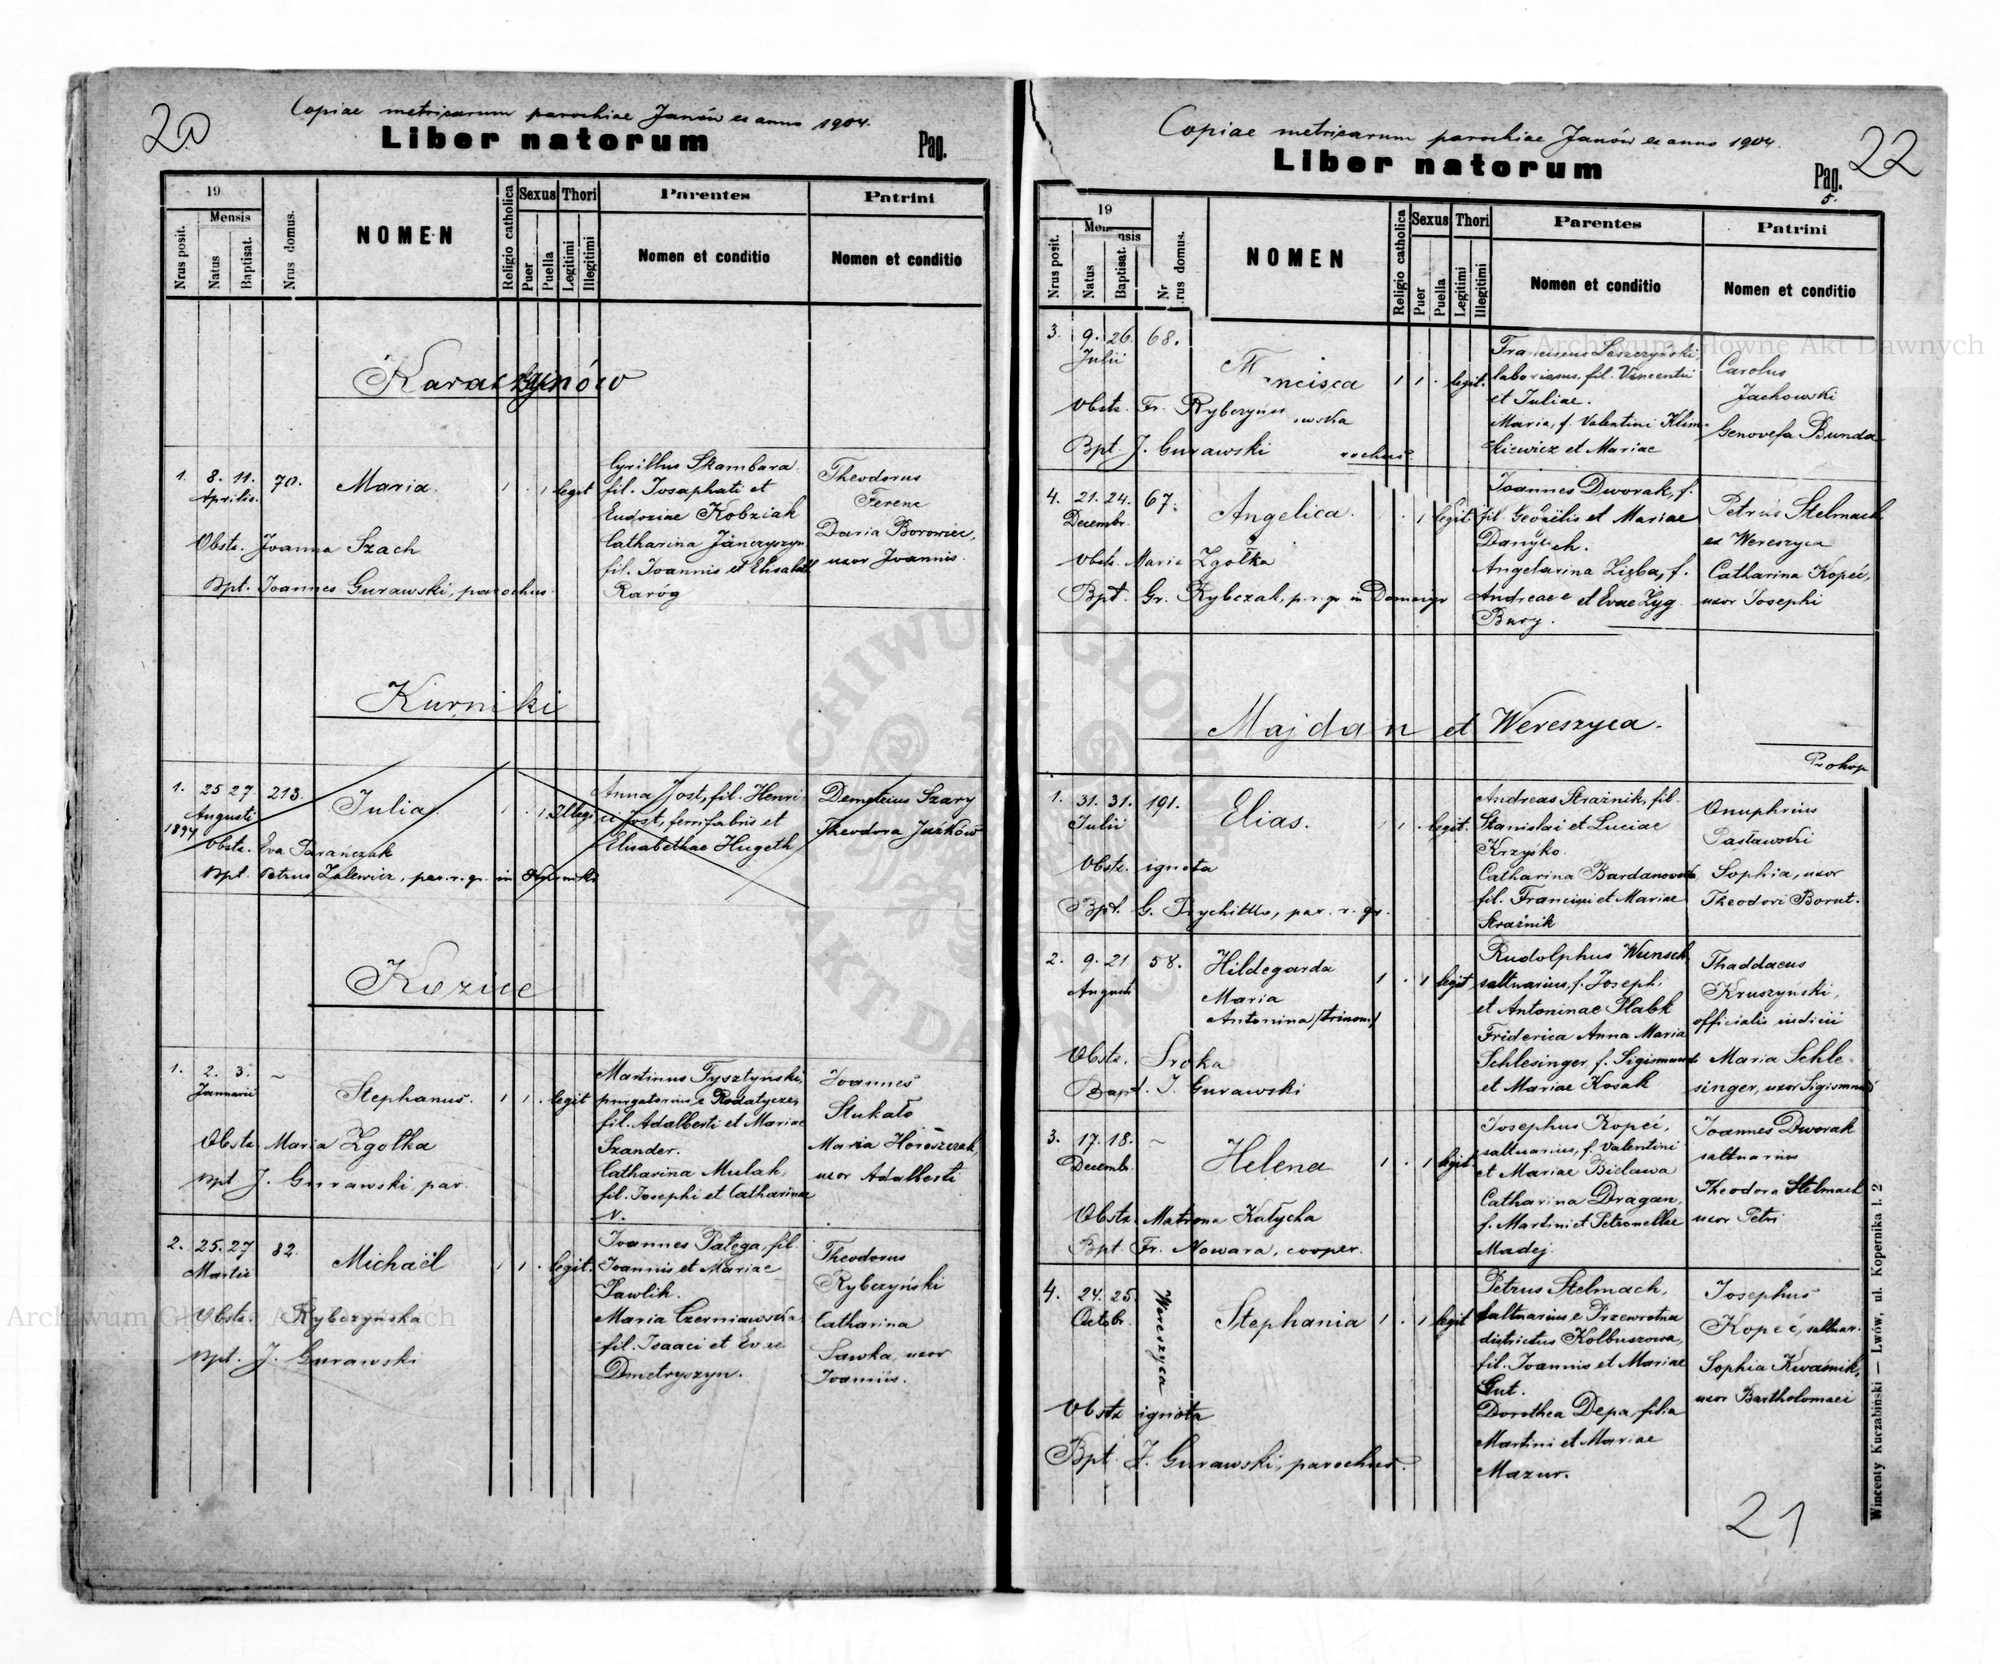 20
Copiae metricarum parochiae Janów ex anno 1904.
Liber natorum
Pag.
19
Mensis
Nrus posit.
Natus
Baptisat.
Nrus domus.
NOMEN
Religio catholica
Sexus
Puer
Puella
Thori
Legitimi
Illegitimi
Parentes
Nomen et conditio
Patrini
Nomen et conditio
1. 8. 11. 70. Maria. 1 . 1 legit
Aprilis.
Obstr. Joanna Szach
Bpt. Joannes Gurawski, parochus.
Cyrillus Skambara
fil. Josaphati et
Eudoxiae Kobziak
Catharina Janczyszyn
fil. Joannis et Elisabeth
Raróg
Theodorus
Ferenc
Daria Borowiec,
uxor Joannis.
Kurniki
1. 25 27. 213. Julia. 1 . 1 Illegi
Augusti
1894
Obstr. Eva Parańczak
Bpt. Petrus Zalewicz, par. r. gr. in Kurniki
Anna Jost, fil. Henri-
ci Jost, ferrifabris et
Elisabethae Hugeth
Demetrius Szary
Theodora Juśków
Kozice
1. 2. 3. ~ Stephanus. 1 1 . legit
Januarii
Obstr. Maria Zgołka
Bpt J. Gurawski par.
Martinus Tysztyński,
purgatorius e Rodatycze,
fil. Adalberti et Mariae
Szander.
Catharina Mulak,
fil. Josephi et Catharinae
N.
Joannes
Stukało
Maria Horoszczak,
uxor Adalberti
2. 25. 27 82. Michaël 1 1 . legit.
Martii
Obstr. Rybczyńska
Bpt. J. Gurawski
Joannes Pałęga, fil.
Joannis et Mariae
Pawlik.
Maria Czerniawska,
fil. Isaaci et Evae
Dmetryszyn.
Theodorus
Rybczyński
Catharina
Sawka, uxor
Joannis.
Copiae metricarum parochiae Janów ex anno 1904.
22
Liber natorum
Pag.
5.
19
Nrus posit.
Natus
Baptisat.
NOMEN
Religio catholica
Sexus
Puer
Puella
Thori
Legitimi
Illegitimi
Parentes
Nomen et conditio
Patrini
Nomen et conditio
3. 9. 26. 68. 1 1 . legit.
Julii
Obstr. Fr.
Bpt. J. Gurawski
Franciscus Leszczyński,
laboriosus, fil. Vincentii
et Juliae.
Maria, f. Valentini Klim-
kiewicz et Mariae
Carolus
Jachowski
Genovefa Bunda
4. 21. 24. 67. Angelica. 1 . 1 legit.
Decembr.
Obstr. Maria Zgołka
Bpt. Gr. Rybczak, p. r. gr. in
Joannes Dworak, f.
et Mariae
Andreae et Evae
Bury.
Petrus Stelmach
ex Wereszyca
Catharina Kopeć,
uxor Josephi
Majdan et Wereszyca.
Prokop
1. 31. 31. 191. Elias. 1 1 . legit.
Julii
Obstr. ignota
Bpt. G. Prychitko, par. r. gr.
Andreas Strażnik, fil.
Stanislai et Luciae
Krzyśko.
Catharina
fil. Francisci et Mariae
Strażnik
Onuphrius
Pasławski
Sophia, uxor
Theodori Borut.
2. 9. 21 58. Hildegarda 1 . 1 legit
Augusti
Maria
Antonina (trinom.)
Obstr. Sroka
Bapt. J. Gurawski
Rudolphus Wunsch,
saltuarius, f. Josephi
et Antoninae Habk
Friderica Anna Maria
Schlesinger f. Sigismundi
et Mariae Kosak
Thaddaeus
Kruszyński,
officialis iudicii
Maria Schle-
singer, uxor Sigismundi
3. 17. 18. ~ Helena 1 . 1 legit.
Decembr.
Obstr. Matrona Kałycha
Bpt. Fr. Nowara, cooper.
Josephus Kopeć,
saltuarius, f. Valentini
et Mariae Bielawa
Catharina Dragan,
f. Martini et Petronellae
Madej.
Joannes Dworak
saltuarius
Theodora Stelmach
uxor Petri
4. 24. 25. Wereszyca Stephania 1 . 1 legit
Octobr.
Obstr ignota
Bpt J. Gurawski, parochus.
Petrus Stelmach,
saltuarius e Przewrotna
districtus Kolbuszowa,
fil. Joannis et Mariae
Gut.
Dorothea Depa, filia
Martini et Mariae
Mazur.
Josephus
Kopeć, saltuar.
Sophia Kwaśnik,
uxor Bartholomaei
21
Wincenty Kuczabiński — Lwów, ul. Kopernika l. 2
Archiwum Główne Akt Dawnych
Archiwum Główne Akt Dawnych